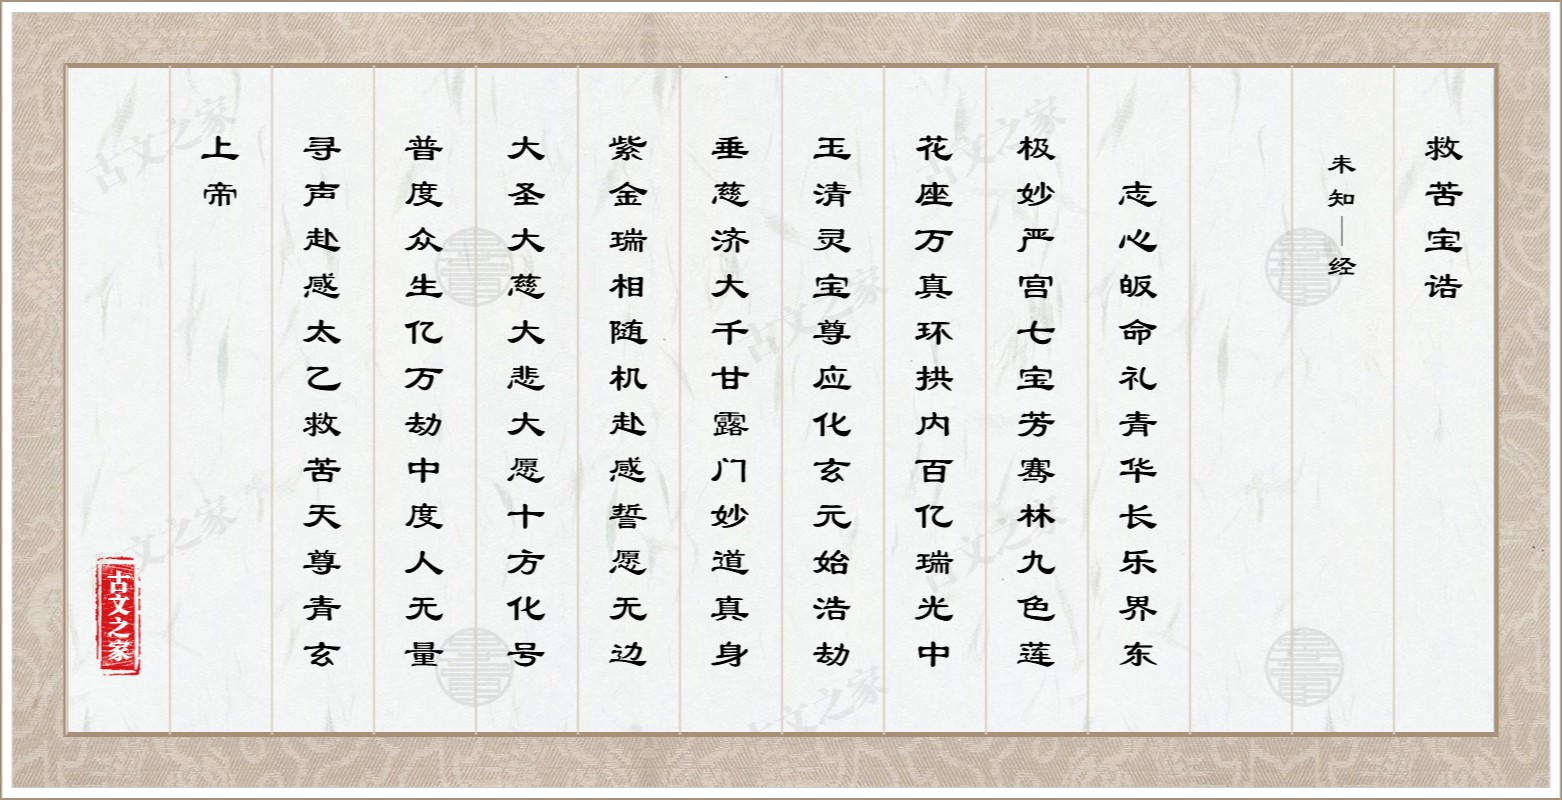 救苦宝诰
未知｜经
志心皈命礼青华长乐界东
极妙严宫七宝芳骞林九色莲
花座万真环拱内百亿瑞光中
玉清灵宝尊应化玄元始浩劫
垂慈济大千甘露门妙道真身
紫金瑞相随机赴感誓愿无边
大圣大慈大悲大愿十方化号
普度众生亿万劫中度人无量
寻声赴感太乙救苦天尊青玄
上帝
古文之家